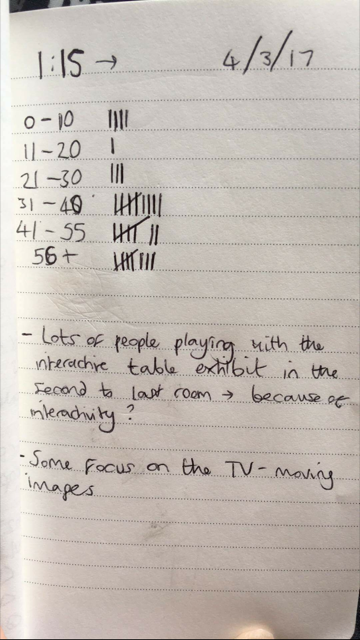 1:15 → 4/3/17
0-10 ||||
11-20 |
21-30 |||
31-40 |||| ||||
41-55 |||| ||
56+ |||| |||
- Lots of people playing with the
interactive table exhibit in the
second to last room → because of
interactivity?
- Some focus on the TV - moving
images